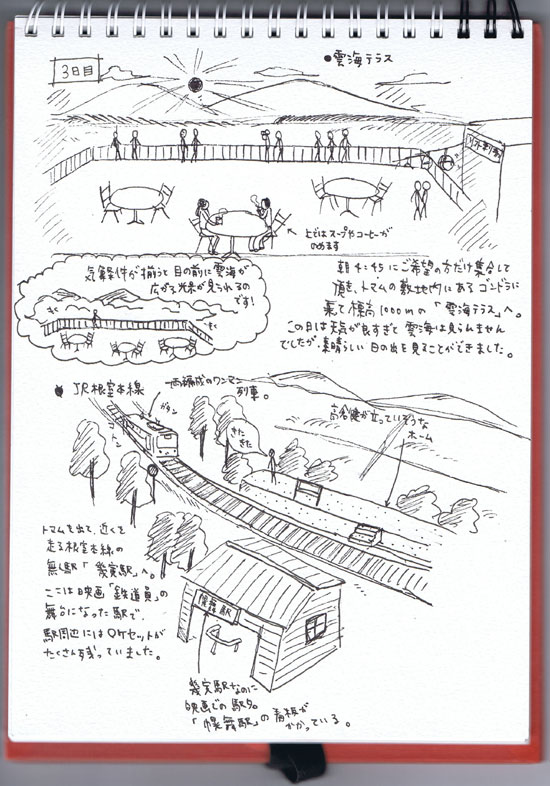 3日目
●雲海テラス
リフト乗り場
上ではスープやコーヒーが
のめます
気象条件が揃うと目の前に雲海が
広がる光景が見られるの
です!
もく
もく
朝4:45にご希望の方だけ集合して
頂き、トマムの敷地内にあるゴンドラに
乗って標高1000mの「雲海テラス」へ。
この日は天気が良すぎて雲海は見られません
でしたが、素晴らしい日の出を見ることができました。
●JR根室本線
一両編成のワンマン
列車。
ガタン
ゴトン
きた
きた
高倉健が立っていそうな
ホーム
トマムを出て、近くを
走る根室本線の
無人駅「幾寅駅」へ。
ここは映画「鉄道員」の
舞台になった駅で、
駅周辺にはロケセットが
たくさん残っていました。
幌舞駅
幾寅駅なのに
映画での駅名
「幌舞駅」の看板が
かかっている。